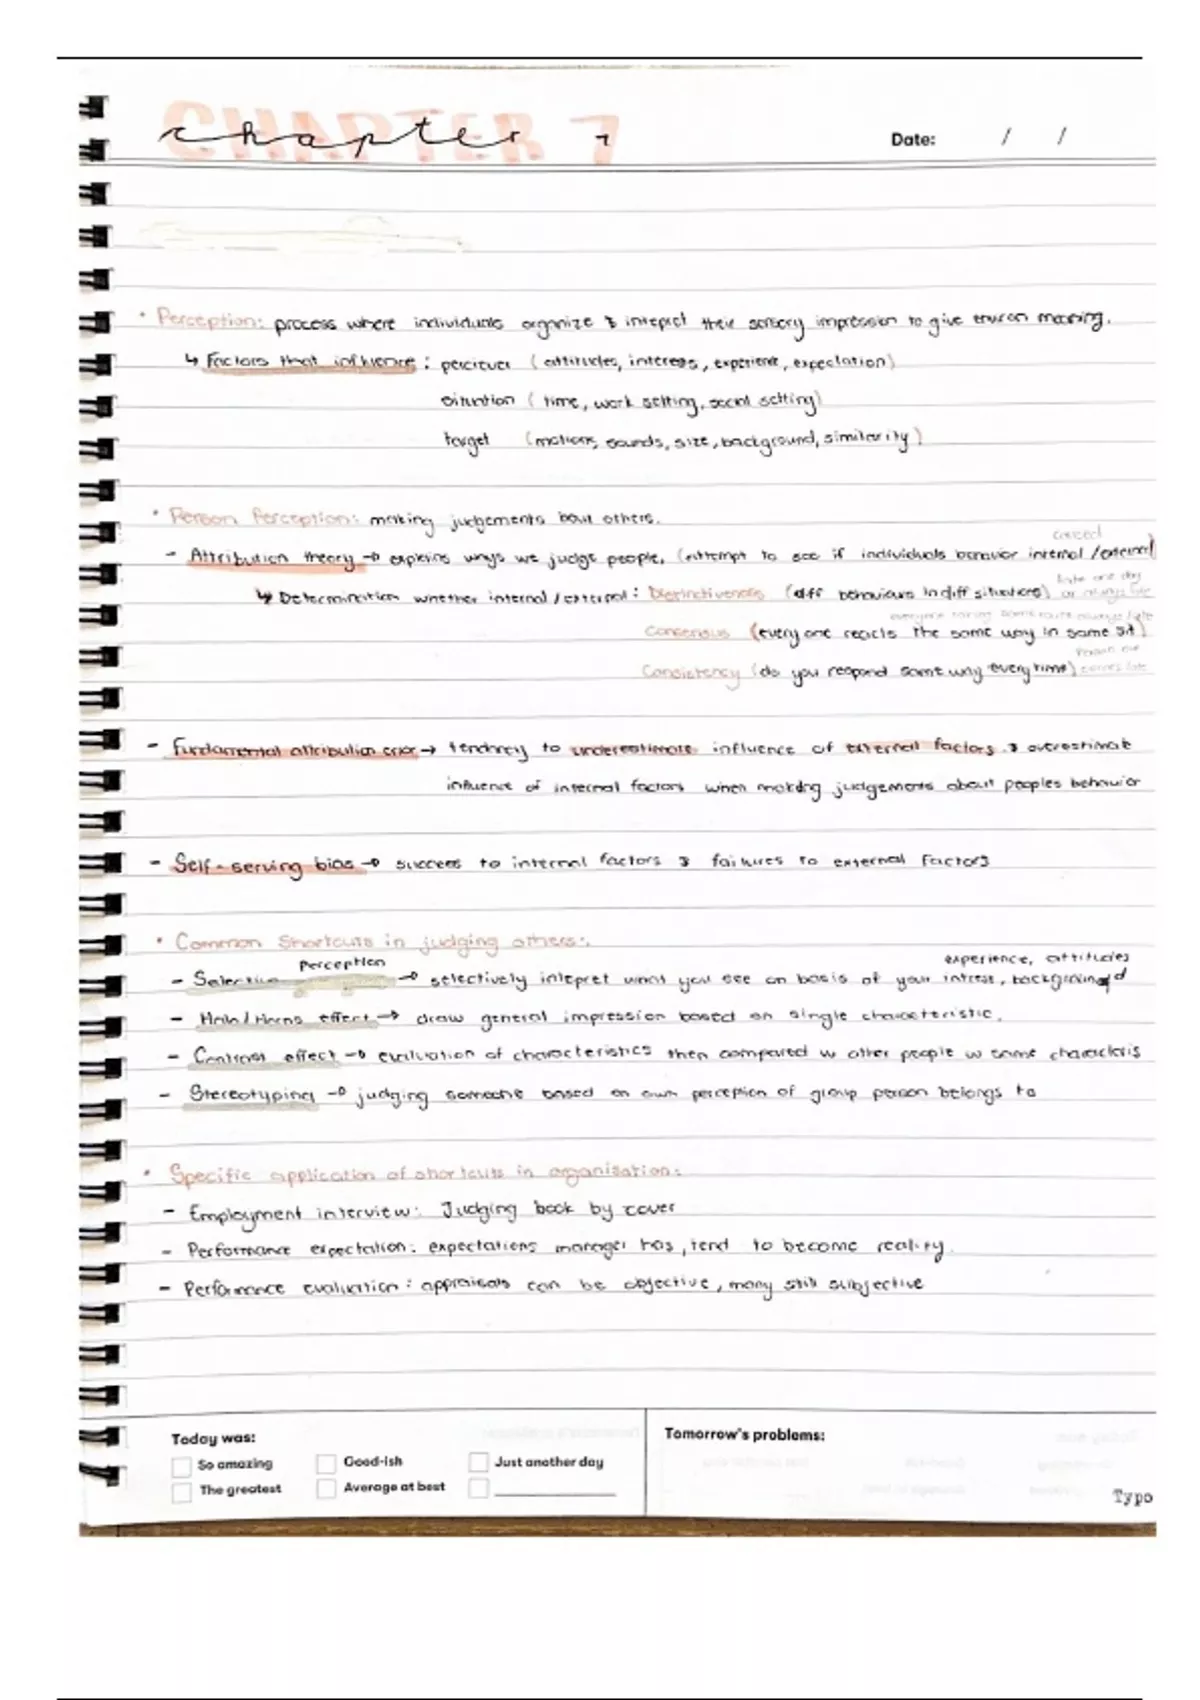 CHAPTER 7
chapter 7
Date: / /
• Perception: process where individuals organize & intepret their sensory impression to give environ meaning.
↳ Factors that influence: perciever (attitudes, interess, experience, expectation)
situation (time, work setting, social setting)
target (motions, sounds, size, background, similarity)
• Person Perception: making judgements bout others.
caused
- Attribution theory → explains ways we judge people, (attempt to see if individuals behavior internal / external)
late one day
↳ Determination whether internal / external: Distinctiveness (diff behaviours in diff situations) or always late
everyone taking same route always late
Consensus (everyone reacts the same way in same sit)
Person
Consistency (do you respond same way everytime) comes late
- Fundamental attribution error → tendency to underestimate influence of external factors & overestimate
influence of internal factors when making judgements about peoples behavior
- Self-serving bias → success to internal factors & failures to external factors
• Common Shortcuts in judging others:
Perception experience, attitudes
- Selective → selectively intepret what you see on basis of your intress, background
- Halo/Horns effect → draw general impression based on single characteristic.
- Contrast effect → evaluation of characteristics then compared w other people w same characteris
- Stereotyping → judging someone based on own perception of group person belongs to
• Specific application of shortcuts in organisation:
- Employment interview: Judging book by cover
- Performance expectation: expectations manager has, tend to become reality.
- Performance evaluation: appraisals can be objective, many still subjective
Today was:
So amazing Good-ish Just another day
The greatest Average at best
Tomorrow's problems:
Typo